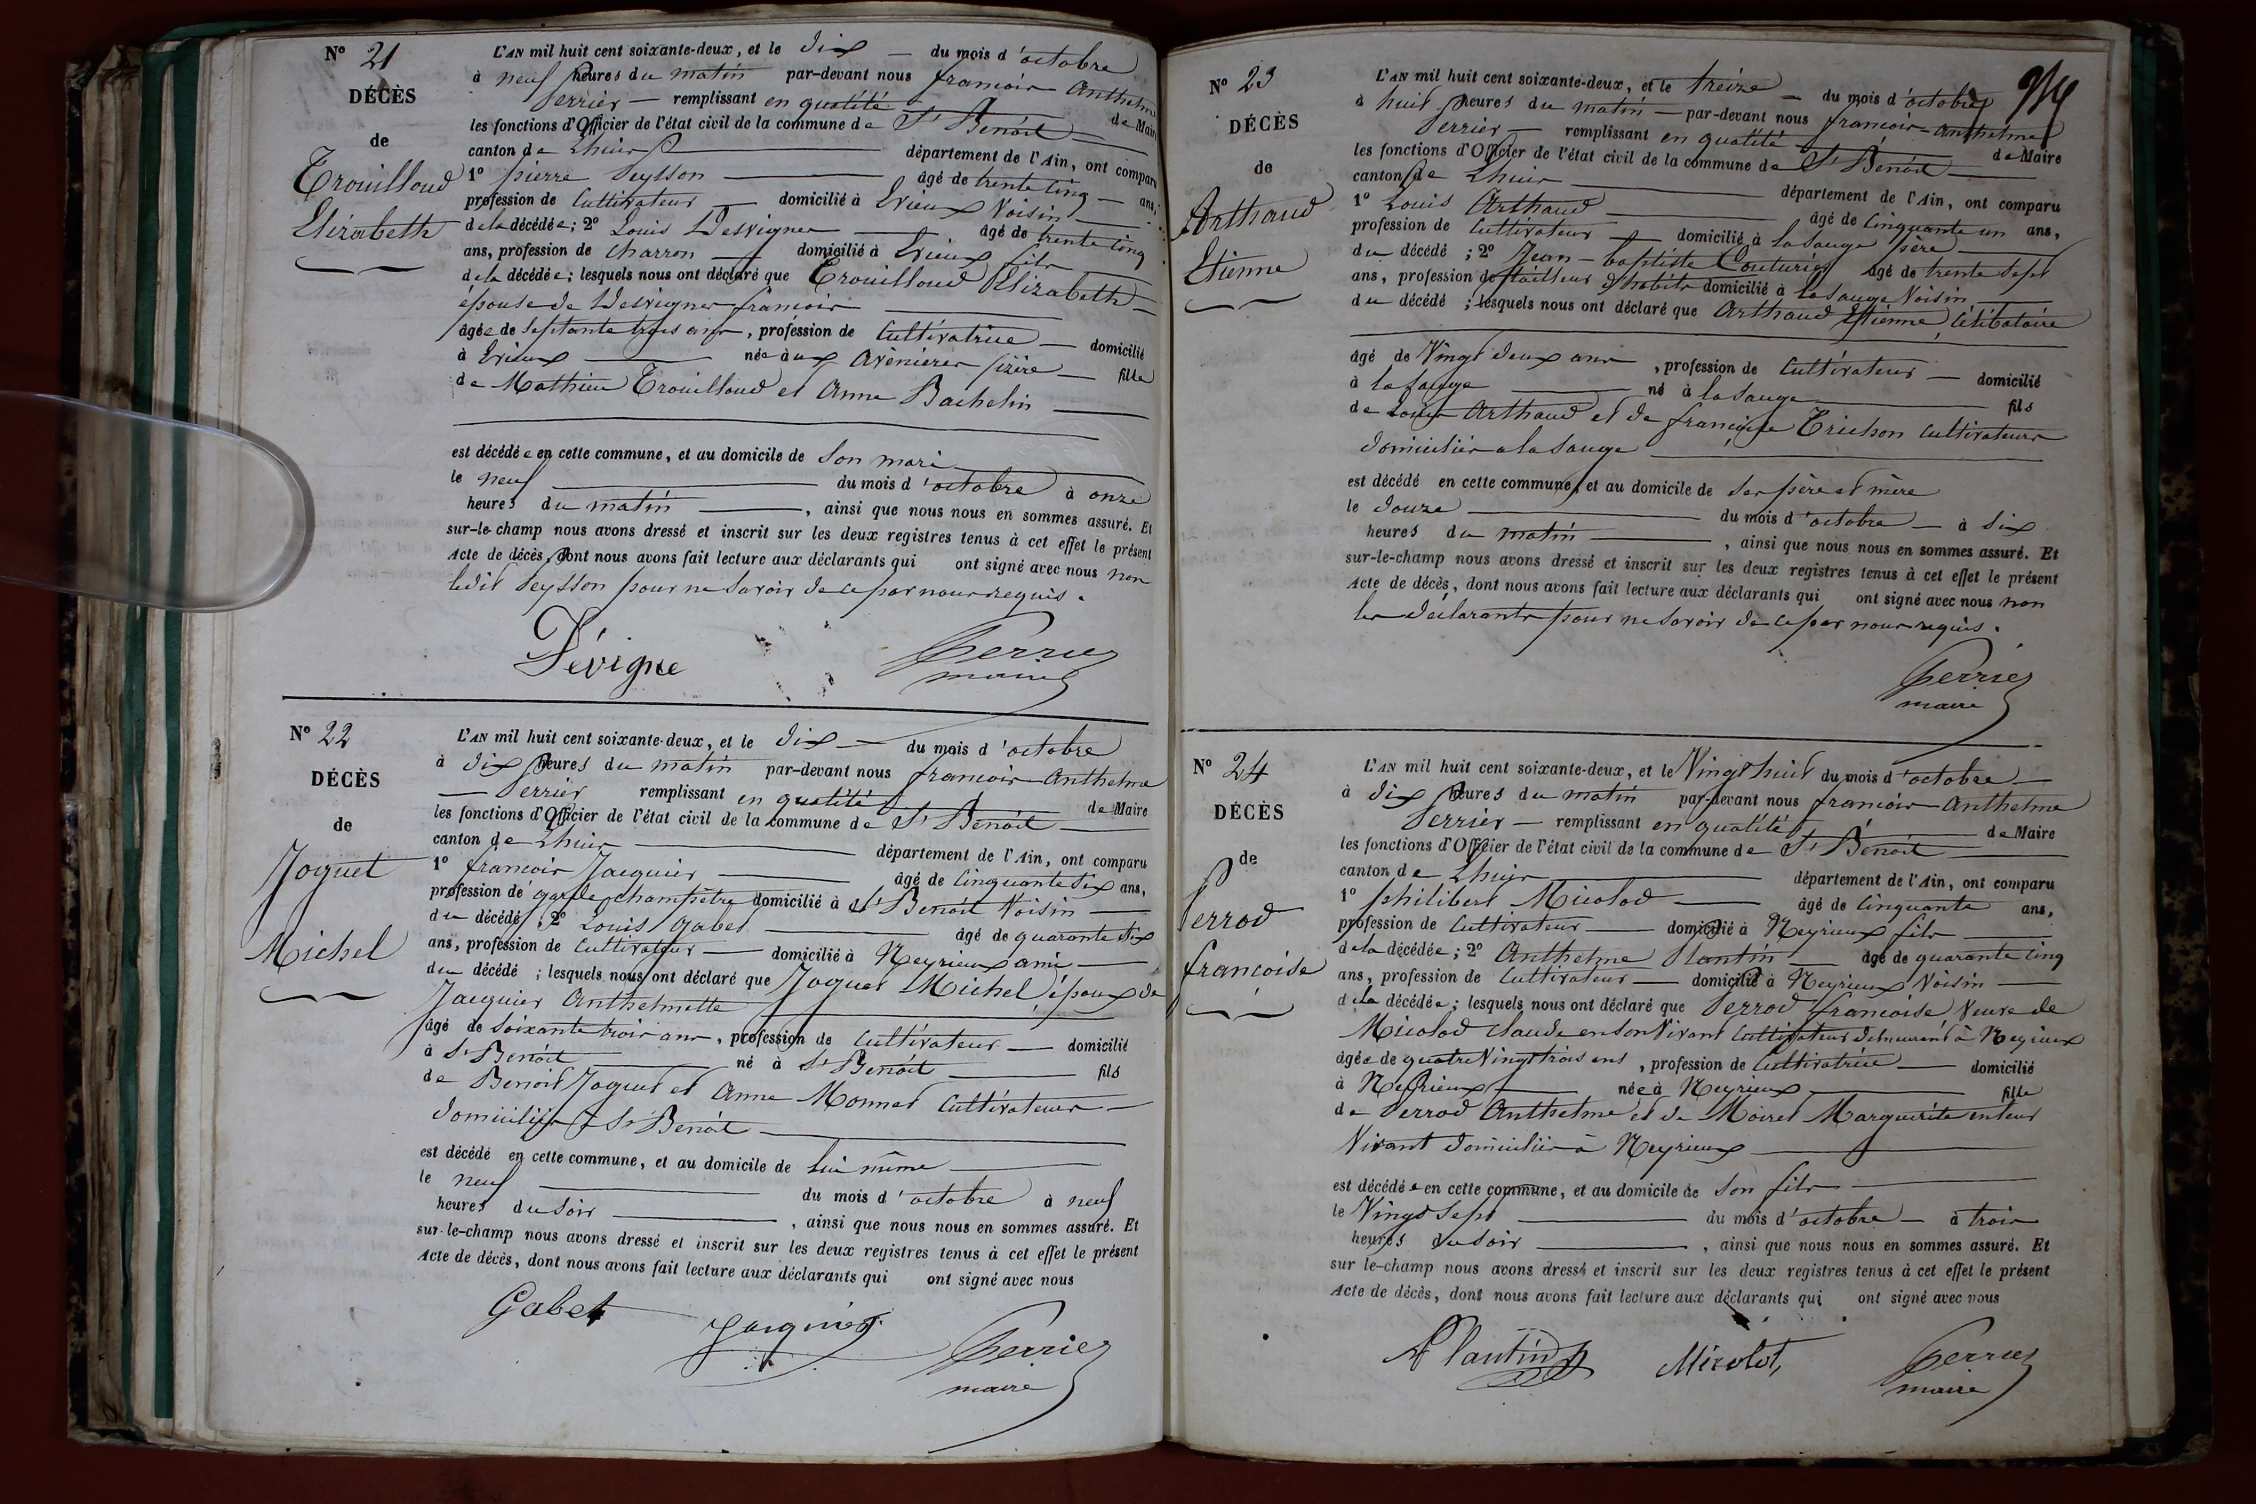 N° 21
DÉCÈS
de
Trouilloud
Elizabeth
L'AN mil huit cent soixante-deux, et le dix — du mois d'octobre
à neuf heures du matin par-devant nous françois Anthelme
Perrier — remplissant en qualité de Maire
les fonctions d'Officier de l'état civil de la commune de St Benoit
canton de Lhuis département de l'Ain, ont comparu
1° pierre Peysson âgé de trente cinq ans,
profession de Cultivateur — domicilié à Evieux Voisin
de la décédée; 2° Louis Desvignes âgé de trente cinq
ans, profession de charron — domicilié à Evieux fils
de la décédée; lesquels nous ont déclaré que Trouilloud Elizabeth
épouse de Desvignes françois
âgée de Septante trois ans, profession de Cultivatrice — domicilié
à Evieux née aux Avenieres isère — fille
de Mathieu Trouilloud et Anne Bachelin
est décédée en cette commune, et au domicile de Son mari
le neuf du mois d'octobre à onze
heures du matin, ainsi que nous nous en sommes assuré. Et
sur-le-champ nous avons dressé et inscrit sur les deux registres tenus à cet effet le présent
Acte de décès, dont nous avons fait lecture aux déclarants qui ont signé avec nous non
ledit Peysson pour ne Savoir de ce par nous requis.
Dévigne Perrier
maire
N° 22
DÉCÈS
de
Joguet
Michel
L'AN mil huit cent soixante-deux, et le dix — du mois d'octobre
à dix heures du matin par-devant nous françois Anthelme
— Perrier remplissant en qualité de Maire
les fonctions d'Officier de l'état civil de la commune de St Benoit
canton de Lhuis département de l'Ain, ont comparu
1° françois Jacquier âgé de Cinquante Six ans,
profession de garde champêtre domicilié à St Benoit Voisin
du décédé; 2° Louis Gabet âgé de quarante Six
ans, profession de Cultivateur — domicilié à Neyrieux ami
du décédé; lesquels nous ont déclaré que Joguet Michel époux de
Jacquier Anthelmette
âgé de Soixante trois ans, profession de Cultivateur — domicilié
à St Benoit né à St Benoit fils
de Benoit Joguet et Anne Monnet Cultivateurs —
domiciliés à St Benoit
est décédé en cette commune, et au domicile de Lui même
le neuf du mois d'octobre à neuf
heures du soir, ainsi que nous nous en sommes assuré. Et
sur-le-champ nous avons dressé et inscrit sur les deux registres tenus à cet effet le présent
Acte de décès, dont nous avons fait lecture aux déclarants qui ont signé avec nous
Gabet Jacquier Perrier
maire
N° 23
DÉCÈS
de
Arthaud
Etienne
L'AN mil huit cent soixante-deux, et le treize — du mois d'octobre
à huit heures du matin — par-devant nous françois Anthelme
Perrier — remplissant en qualité de Maire
les fonctions d'Officier de l'état civil de la commune de St Benoit
canton de Lhuis département de l'Ain, ont comparu
1° Louis Arthaud âgé de Cinquante un ans,
profession de Cultivateur — domicilié à la Sauge père
du décédé; 2° Jean-baptiste Couturier âgé de trente Sept
ans, profession de tailleur d'habits domicilié à la Sauge Voisin
du décédé; lesquels nous ont déclaré que Arthaud Etienne Célibataire
âgé de Vingt deux ans, profession de Cultivateur — domicilié
à la Sauge né à la Sauge fils
de Louis Arthaud et de françoise Trichon Cultivateurs
domiciliés a la Sauge
est décédé en cette commune, et au domicile de Ses père et mère
le douze du mois d'octobre — à Six
heures du matin, ainsi que nous nous en sommes assuré. Et
sur-le-champ nous avons dressé et inscrit sur les deux registres tenus à cet effet le présent
Acte de décès, dont nous avons fait lecture aux déclarants qui ont signé avec nous non
les déclarants pour ne Savoir de ce par nous requis.
Perrier
maire
N° 24
DÉCÈS
de
Perrod
françoise
L'AN mil huit cent soixante-deux, et le Vingt huit du mois d'octobre
à dix heures du matin par-devant nous françois Anthelme
Perrier — remplissant en qualité de Maire
les fonctions d'Officier de l'état civil de la commune de St Benoit
canton de Lhuis département de l'Ain, ont comparu
1° philibert Micolod âgé de Cinquante ans,
profession de Cultivateur — domicilié à Neyrieux fils
de la décédée; 2° Anthelme Plantin — âgé de quarante Cinq
ans, profession de Cultivateur — domicilié à Neyrieux Voisin
de la décédée; lesquels nous ont déclaré que Perrod françoise Veuve de
Micolod Claude en son Vivant Cultivateur demeurant à Neyrieux
âgée de quatre Vingt trois ans, profession de Cultivatrice — domicilié
à Neyrieux née à Neyrieux fille
de Perrod Anthelme et de Moiret Marguerite en leur
Vivant domiciliés à Neyrieux
est décédée en cette commune, et au domicile de Son fils
le Vingt Sept du mois d'octobre — à trois
heures du Soir, ainsi que nous nous en sommes assuré. Et
sur le-champ nous avons dressé et inscrit sur les deux registres tenus à cet effet le présent
Acte de décès, dont nous avons fait lecture aux déclarants qui ont signé avec nous
A Plantin Micolod Perrier
maire